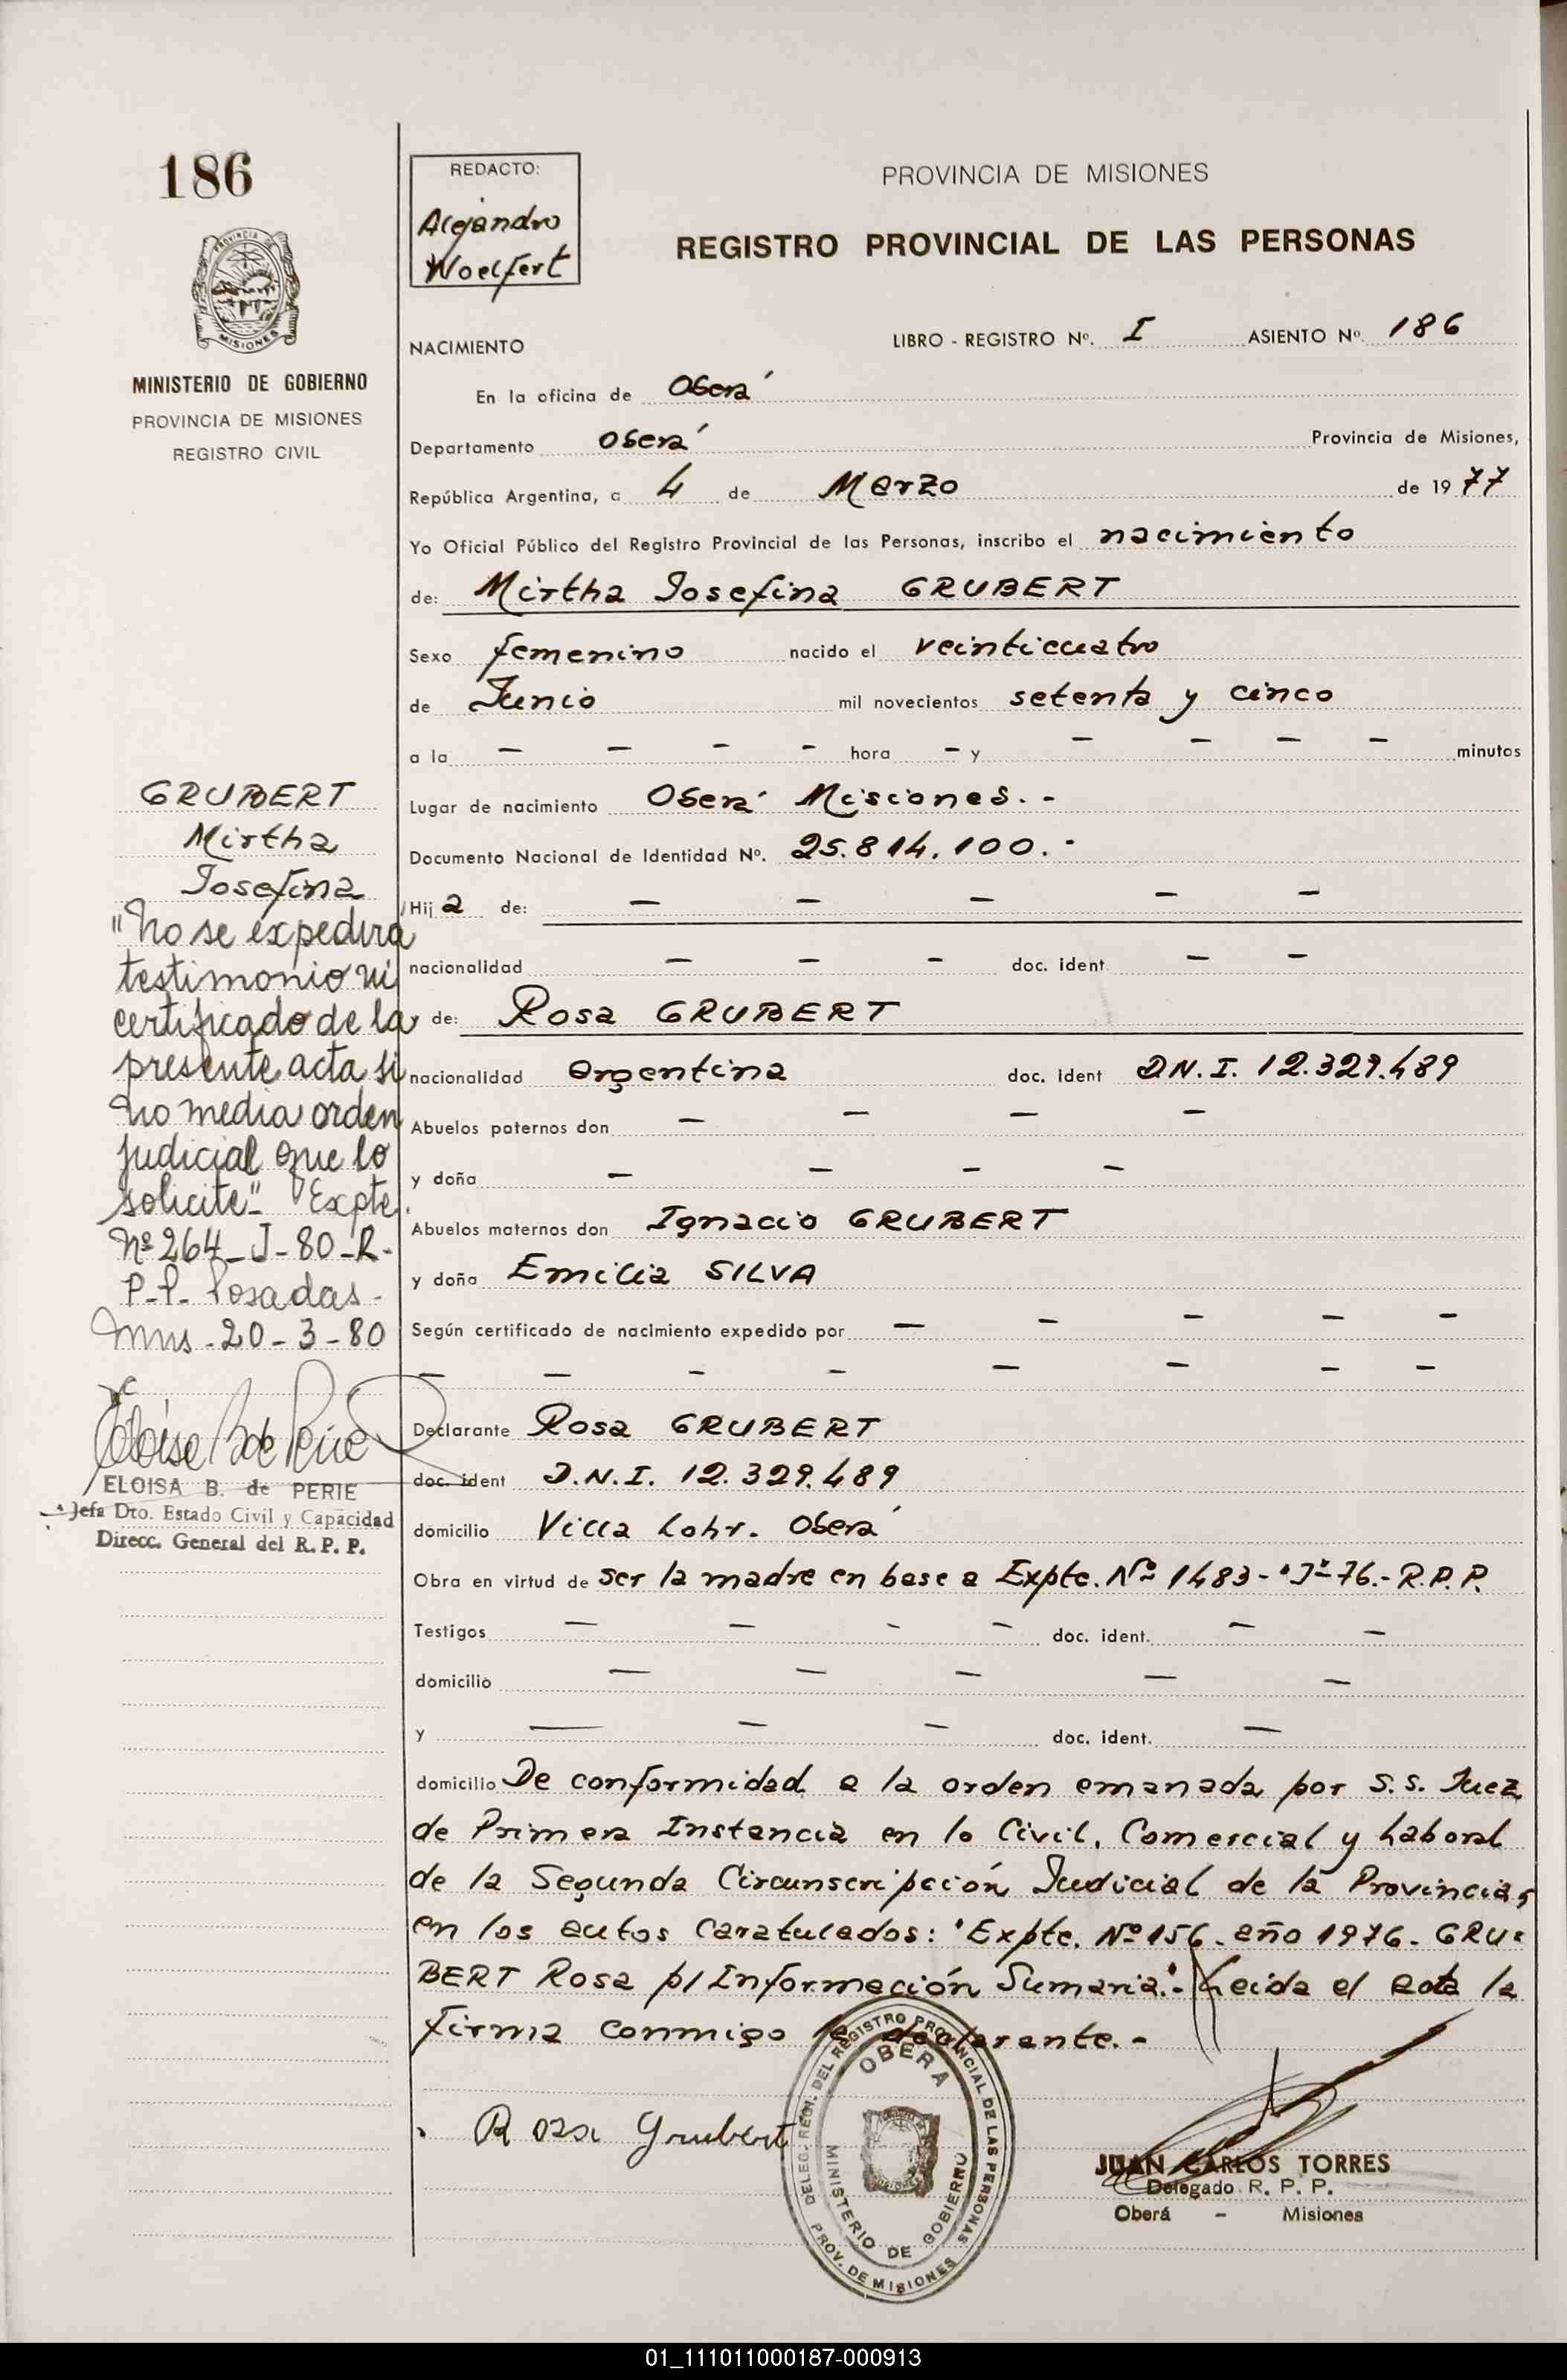 186
PROVINCIA DE
MISIONES
MINISTERIO DE GOBIERNO
PROVINCIA DE MISIONES
REGISTRO CIVIL
GRUBERT
Mirtha
Josefina
"No se expedirá
testimonio ni
certificado de la
presente acta si
no media orden
judicial que lo
solicite". Expte.
Nº 264-J-80-R-
P-P- Posadas-
Mns-20-3-80
ELOISA B. de PERIE
Jefa Dto. Estado Civil y Capacidad
Direcc. General del R. P. P.
REDACTO:
Alejandro
Woelfert
PROVINCIA DE MISIONES
REGISTRO PROVINCIAL DE LAS PERSONAS
NACIMIENTO LIBRO - REGISTRO Nº. I ASIENTO Nº. 186
En la oficina de Oberá
Departamento Oberá Provincia de Misiones,
República Argentina, a 4 de Marzo de 1977
Yo Oficial Público del Registro Provincial de las Personas, inscribo el nacimiento
de: Mirtha Josefina GRUBERT
Sexo femenino nacido el veinticuatro
de Junio mil novecientos setenta y cinco
a la - - - - hora - y - - - - minutos
Lugar de nacimiento Oberá Misiones.-
Documento Nacional de Identidad Nº. 25.814.100.-
Hija de: - - - - -
nacionalidad - - - doc. ident - -
y de: Rosa GRUBERT
nacionalidad argentina doc. ident D.N.I. 12.329.489
Abuelos paternos don - - - -
y doña - - - -
Abuelos maternos don Ignacio GRUBERT
y doña Emilia SILVA
Según certificado de nacimiento expedido por - - - - -
- - - - - - - -
Declarante Rosa GRUBERT
doc. ident D.N.I. 12.329.489
domicilio Villa Lohr. Oberá
Obra en virtud de ser la madre en base a Expte. Nº 1483-"J"-76.-R.P.P.
Testigos - - - - doc. ident. - -
domicilio - - - - -
y - - - doc. ident. -
domicilio De conformidad a la orden emanada por S.S. Juez
de Primera Instancia en lo Civil, Comercial y Laboral
de la Segunda Circunscripción Judicial de la Provincia,
en los autos caratulados: "Expte. Nº 156-año 1976- GRU-
BERT Rosa p/ Información Sumaria".- Leida el acta la
firma conmigo la declarante.-
Rosa Grubert
DELEG. REGI. DEL REGISTRO PROVINCIAL DE LAS PERSONAS
OBERA
MINISTERIO DE GOBIERNO
PROV. DE MISIONES
JUAN CARLOS TORRES
Delegado R. P. P.
Oberá - Misiones
01_111011000187-000913